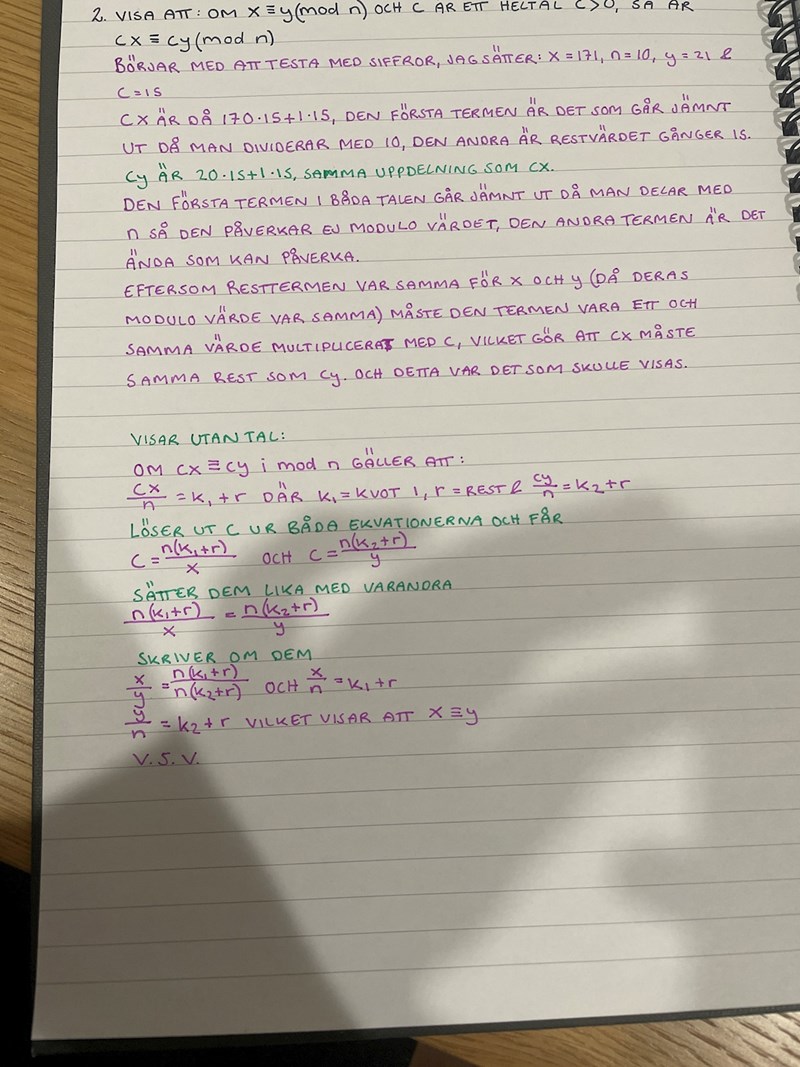 2. VISA ATT: OM X ≡ y (mod n) OCH C ÄR ETT HELTAL C>0, SÅ ÄR
CX ≡ Cy (mod n)
BÖRJAR MED ATT TESTA MED SIFFROR, JAG SÄTTER: X = 171, n = 10, y = 21 &
C = 15
CX ÄR DÅ 170·15+1·15, DEN FÖRSTA TERMEN ÄR DET SOM GÅR JÄMNT
UT DÅ MAN DIVIDERAR MED 10, DEN ANDRA ÄR RESTVÄRDET GÅNGER 15.
Cy ÄR 20·15+1·15, SAMMA UPPDELNING SOM CX.
DEN FÖRSTA TERMEN I BÅDA TALEN GÅR JÄMNT UT DÅ MAN DELAR MED
n SÅ DEN PÅVERKAR EJ MODULO VÄRDET, DEN ANDRA TERMEN ÄR DET
ÄNDA SOM KAN PÅVERKA.
EFTERSOM RESTTERMEN VAR SAMMA FÖR X OCH y (DÅ DERAS
MODULO VÄRDE VAR SAMMA) MÅSTE DEN TERMEN VARA ETT OCH
SAMMA VÄRDE MULTIPLICERAT MED C, VILKET GÖR ATT CX MÅSTE
SAMMA REST SOM Cy. OCH DETTA VAR DET SOM SKULLE VISAS.
VISAR UTAN TAL:
OM CX ≡ Cy i mod n GÄLLER ATT:
CX/n = K₁ + r DÄR K₁ = KVOT 1, r = REST & Cy/n = K₂ + r
LÖSER UT C UR BÅDA EKVATIONERNA OCH FÅR
C = n(K₁+r)/X OCH C = n(K₂+r)/y
SÄTTER DEM LIKA MED VARANDRA
n(K₁+r)/X = n(K₂+r)/y
SKRIVER OM DEM
X/y = n(K₁+r)/n(K₂+r) OCH X/n = K₁ + r
y/n = K₂ + r VILKET VISAR ATT X ≡ y
V.S.V.